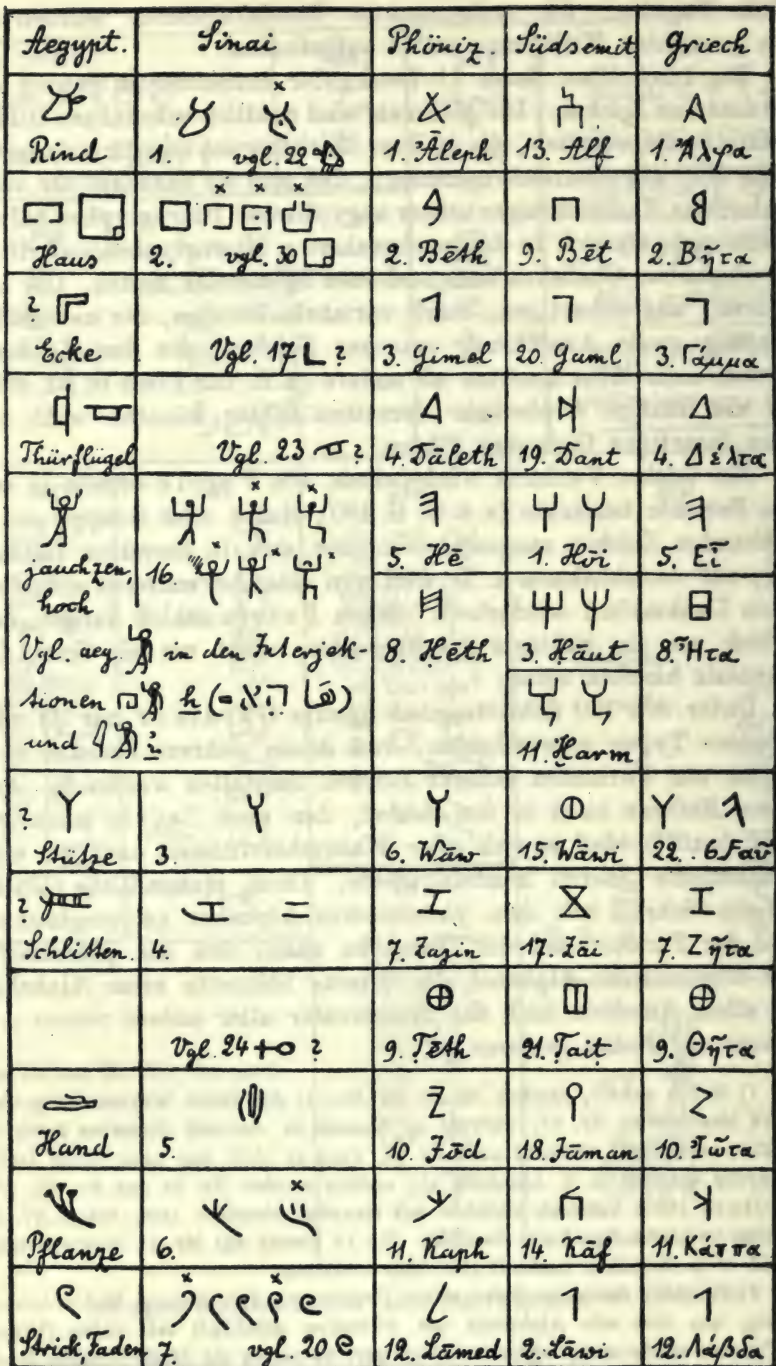 Aegypt. Sinai Phöniz. Südsemit. Griech
Rind 1. vgl. 22 1. Āleph 13. Alf 1. Ἄλφα
Haus 2. vgl. 30 2. Bēth 9. Bēt 2. Βῆτα
? Ecke Vgl. 17 ? 3. Gimel 20. Gaml 3. Γάμμα
Thürflügel Vgl. 23 ? 4. Dāleth 19. Dant 4. Δέλτα
jauchzen, 16. 5. Hē 1. Hōi 5. Εἶ
hoch
Vgl. aeg. in den Interjek- 8. Ḥēth 3. Ḥāut 8. Ἦτα
tionen h (= הָא)
und i̓ 11. Ḫarm
? Stütze 3. 6. Wāw 15. Wāwi 22. 6. Ϝαῦ
? Schlitten. 4. 7. Zajin 17. Zāi 7. Ζῆτα
Vgl. 24 ? 9. Ṭēth 21. Ṭaiṭ 9. Θῆτα
Hand 5. 10. Jōd 18. Jāman 10. Ἰῶτα
Pflanze 6. 11. Kaph 14. Kāf 11. Κάππα
Strick, Faden 7. vgl. 20 12. Lāmed 2. Lāwi 12. Λάβδα